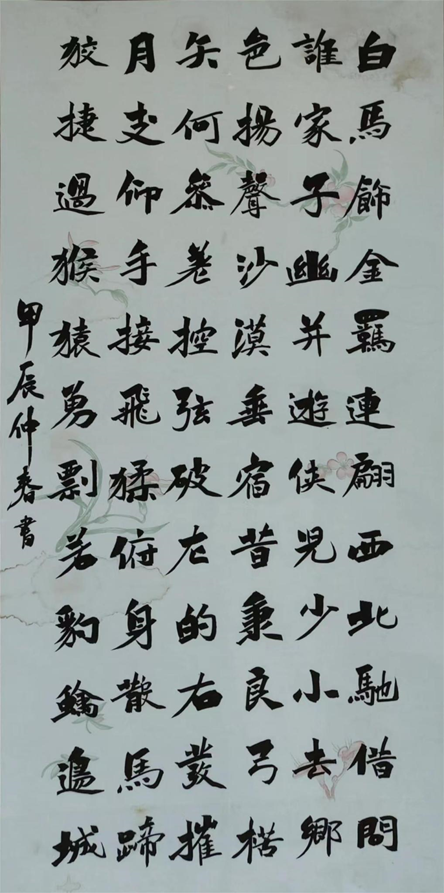 白馬飾金羈連翩西北馳借問
誰家子幽并遊俠兒少小去鄉
邑揚聲沙漠垂宿昔秉良弓楛
矢何參差控弦破左的右發摧
月支仰手接飛猱俯身散馬蹄
狡捷過猴猿勇剽若豹螭邊城
甲辰仲春書